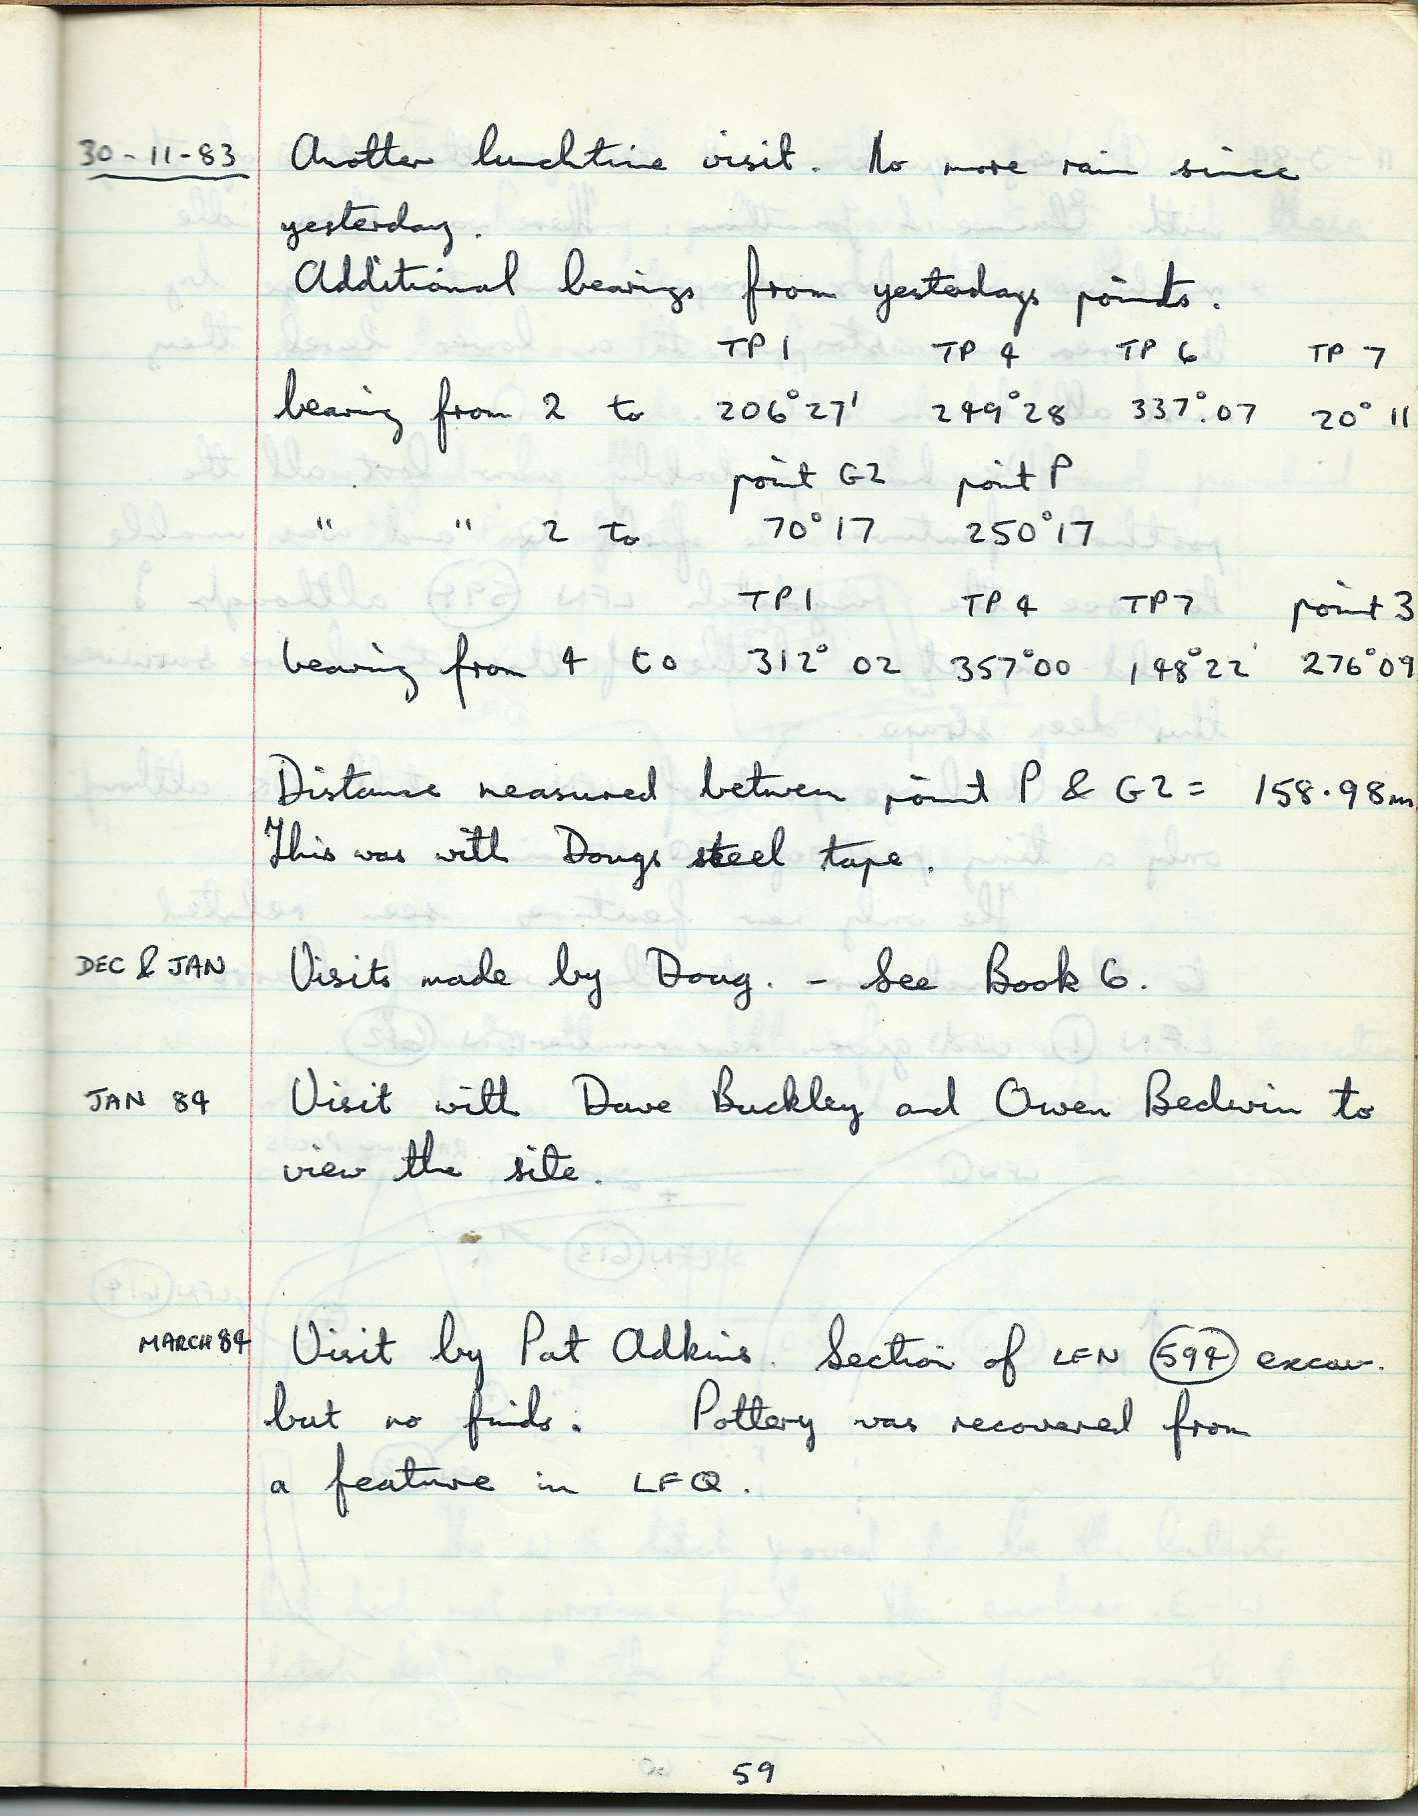 30-11-83 Another lunchtime visit. No more rain since
yesterday.
Additional bearings from yesterdays points.
TP1 TP4 TP6 TP7
bearing from 2 to 206°27' 249°28 337°.07 20°11
point G2 point P
" " 2 to 70°17 250°17
TP1 TP4 TP7 point 3
bearing from 4 to 312°02 357°00 148°22' 276°09
Distance measured between point P & G2 = 158.98m
This was with Dougs steel tape.
DEC & JAN Visits made by Doug. - See Book 6.
JAN 84 Visit with Dave Buckley and Owen Bedwin to
view the site.
MARCH 84 Visit by Pat Adkins. Section of LFN 594 excav.
but no finds. Pottery was recovered from
a feature in LFQ.
59